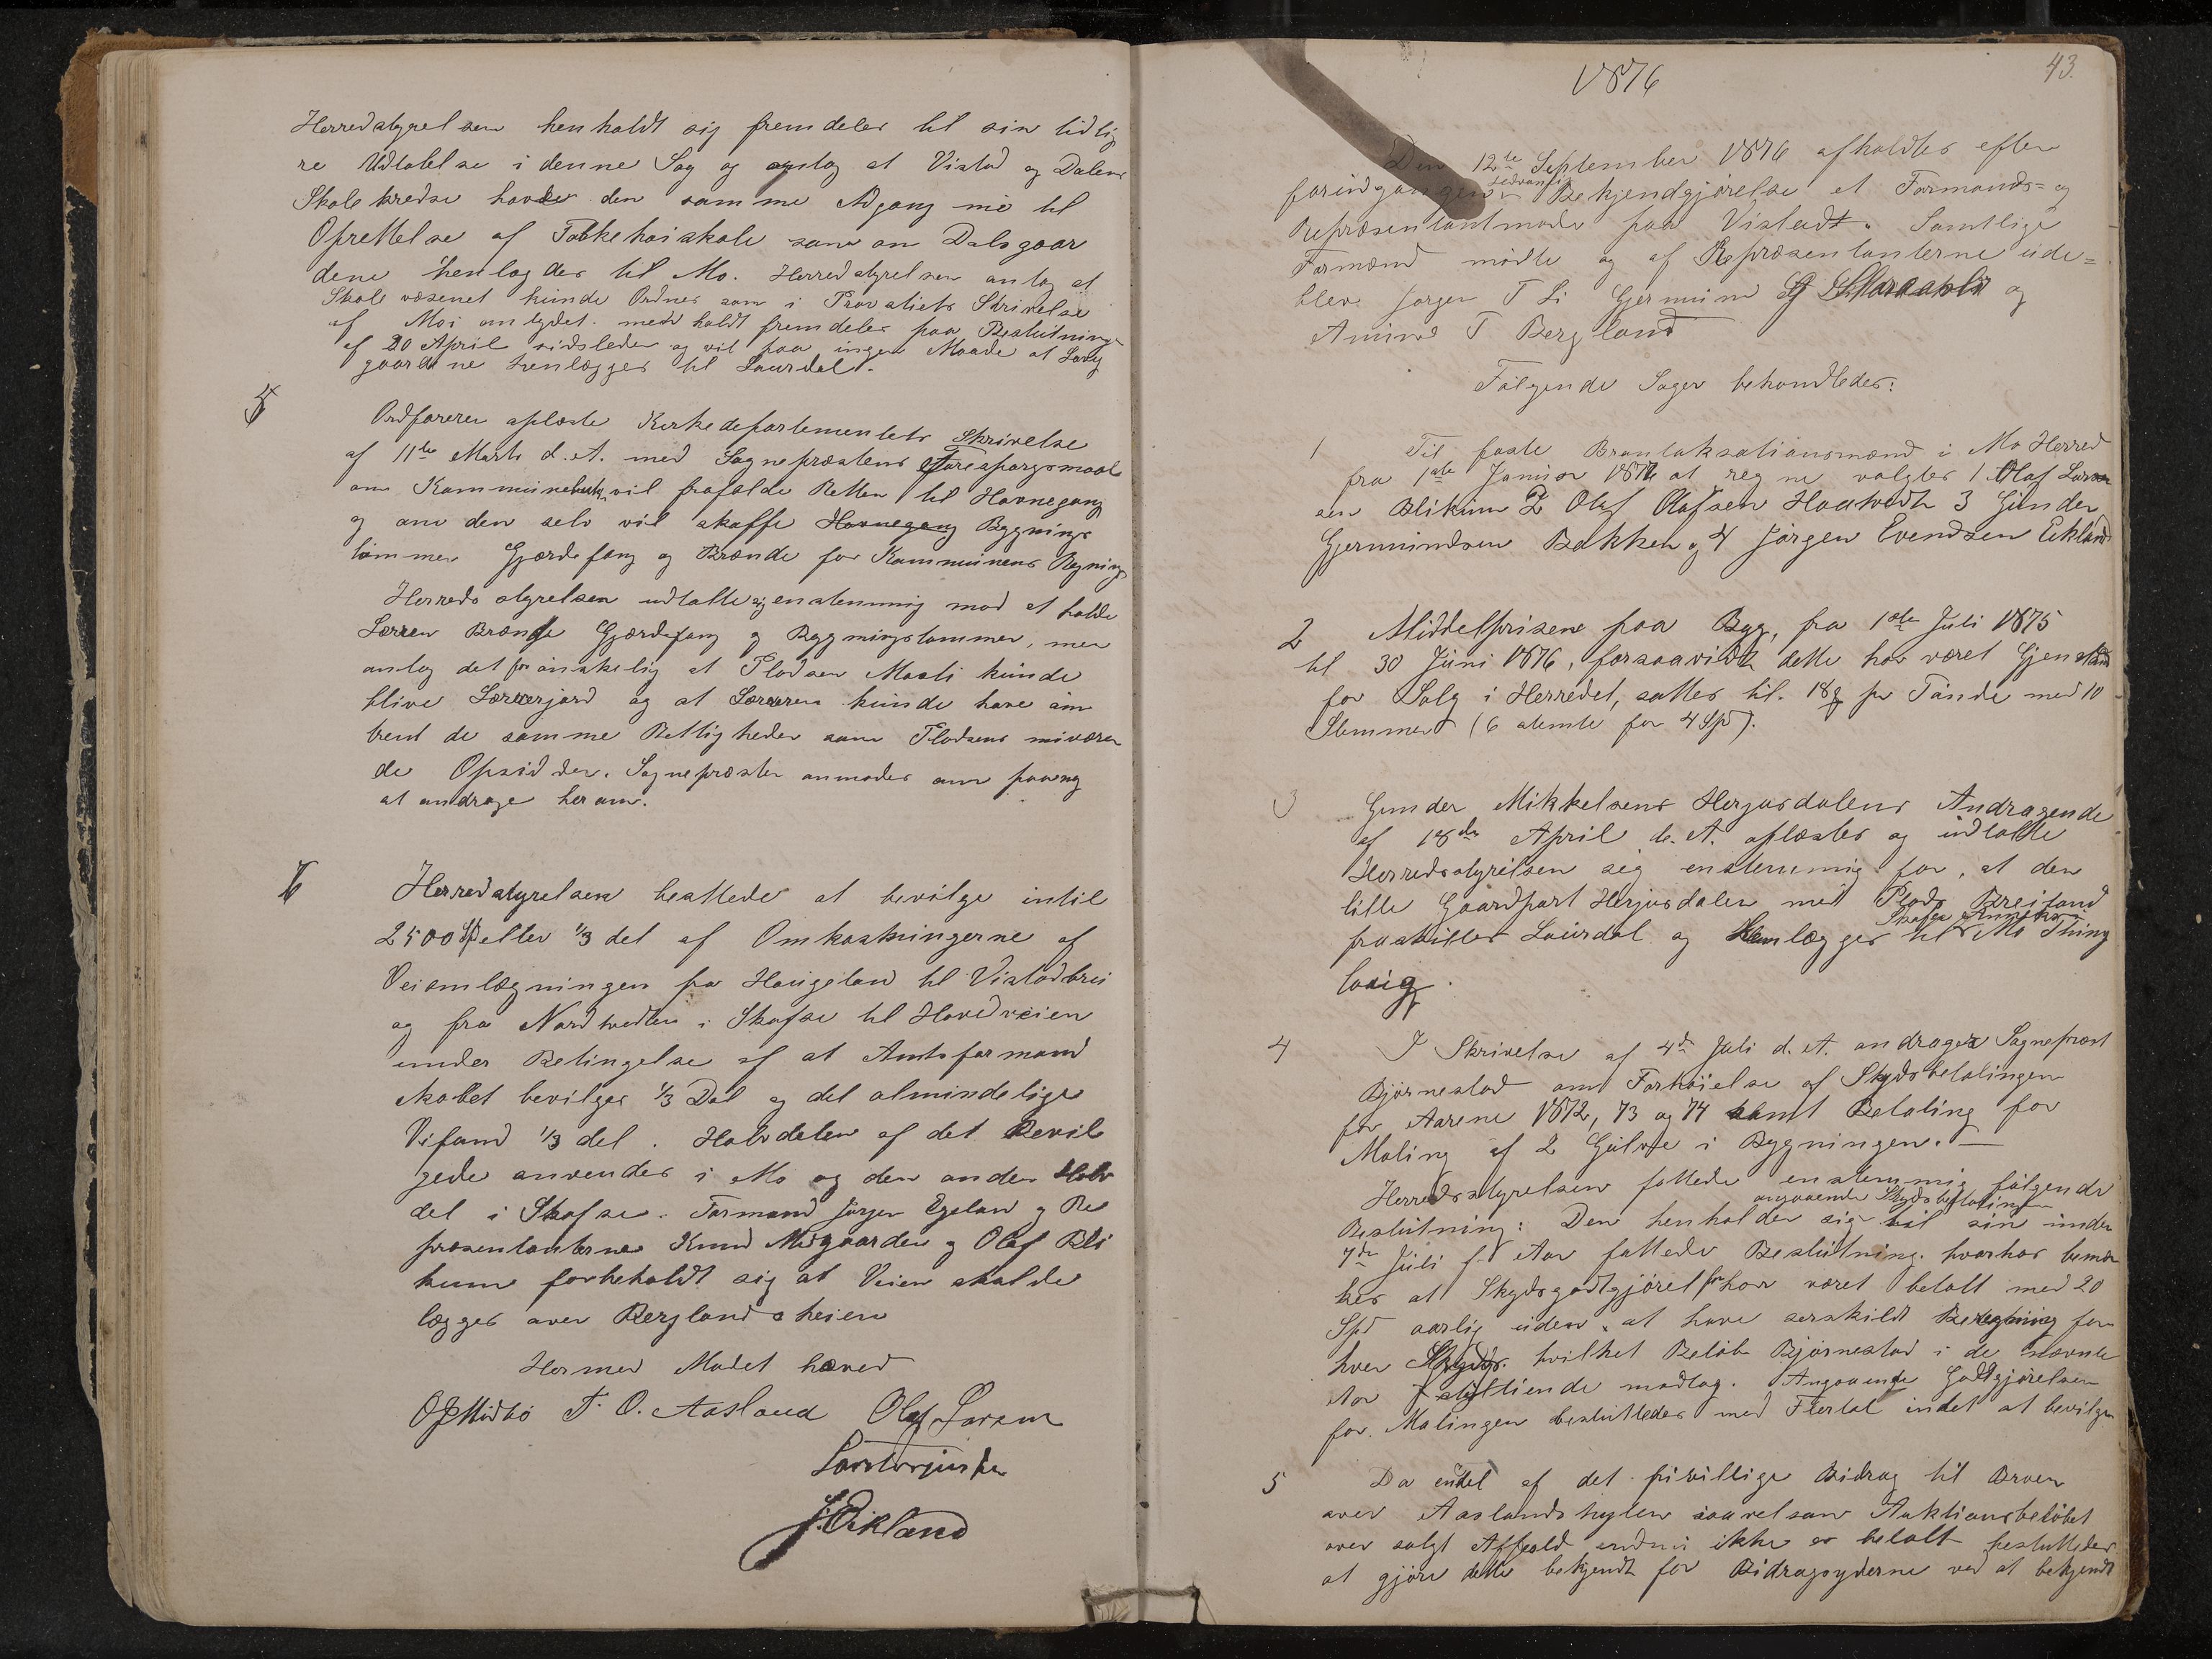 Herredstyrelsen henholdt sig fremdeles til sin tidlig
re Udtalelse i denne Sag og antog at Vistad og Dalens
Skolekredse havde den samme Adgang nu til
Oprettelse af Folkehøiskole som om Dalsgaar
dene henlagdes til Mo. Herredstyrelsen antog at
Skolevæsenet kunde Ordnes som i Provstiets Skrivelse
af Moi antydet. med holdt fremdeles paa Beslutningen
af 20 April sidstleden og vil paa ingen Maade at
gaardene henlægges til Laurdal.
5
Ordføreren oplæste Kirkedepartementets Skrivelse
af 11te Marts d. A. med Sognepræstens Forespørgsmaal
om Kommunen vil frafalde Retten til Havnegang
og om den selv vil skaffe Havnegang Bygnings
tømmer Gjærdefang og Brænde for Kommunens Regning
Herredsstyrelsen udtalte sig enstemmig mod at holde
Læreren Brænde Gjærdefang og Bygningstømmer, men
antog det for ønskelig at Pladsen Mosli kunde
blive Lærerjord og at Læreren kunde have om
trent de samme Rettigheder som Pladsens nuværen
de Opsidder. Sognepræsten anmodes om paany
at andrage herom.
6
Herredstyrelsen besluttede at bevilge indtil
2500 Spd eller 1/3 del af Omkostningerne af
Veiomlægningen fra Haugeland til Vistadbrei
og fra Nordtvedten i Skafse til Hovedveien
under Betingelse af at Amtsformand
skabet bevilger 1/3 Del og det almindelige
Veifond 1/3 del. Halvdelen af det Bevil
gede anvendes i Mo og den anden Halv
del i Skafse. Formand Jørgen Egeland og Re
præsentanterne Knud Midgaarden og Olaf Bli
kum forbeholdt sig at Veien skulde
lægges over Berglandsheien
Hermed Mødet hævet
O J Midbø T. O. Aasland Olaf Larsen
J. Eikland
43.
1876
Den 12te September 1876 afholdtes efter
foreindgangen sedvanlig Bekjendtgjørelse et Formands= og
Repræsentantmøde paa Vistadt. Samtlige
Formænd mødte og af Repræsentanterne ude=
blev Jørgen T Li Gjermund og
Amund T Bergland
Følgende Sager behandledes:
1 Til faste Brantaksationsmænd i Mo Herred
fra 1ste Januar 1876 at regne valgtes 1 Olaf Lar
sen Blikum 2 Olaf Olafsen Haatvedt 3 Gunder
Gjermundsen Bakken og 4 Jørgen Evendsen Eikland
2 Middelprisene paa Byg, fra 1ste Juli 1875
til 30 Juni 1876, forsaavidt dette har været Gjenstand
for Salg i Herredet, sattes til 18 pr Tønde med 10
Stemmer (6 stemte for 4 Spd).
3 Gunder Mikkelsens Herjusdalens Andragende
af 18de April d. A. oplæstes og udtalte
Herredsstyrelsen sig enstemmig for, at den
lille Gaardpart Herjusdalen med Plads Breiland
fraskilles Laurdal og Henlægges til Skafse Annekts i Mo Thing
laug.
4 I Skrivelse af 4de Juli d. A. andrager Sognepræst
Bjørnestad om Forhøielse af Skydsbetalingen
for Aarene 1872, 73 og 74 samt Betaling for
Maling af 2 Gulve i Bygningen. —
Herredsstyrelsen fattede enstemmig følgende
Beslutning: Den henholder sig angaaende Skydsbetalingen til sin under
7de Juli f. Aar fattede Beslutning. hvorhos bemær
kes at Skydsgodtgjørelsen har været betalt med 20
Spd aarlig uden at have særskildt Beregning for
hver Skyds. hvilket Beløb Bjørnestad i de nævnte
Aar stiltiende modtog. Angaaende Godtgjørelsen
for Malingen besluttedes med Flertal intet at bevilge
5 Da endel af det frivillige Bidrag til Broen
over Aaslandshylen saavelsom Auktionsbeløbet
over solgt Affald endnu ikke er betalt besluttedes
at gjøre dette bekjendt for Bidragsyderne ved at bekjendt